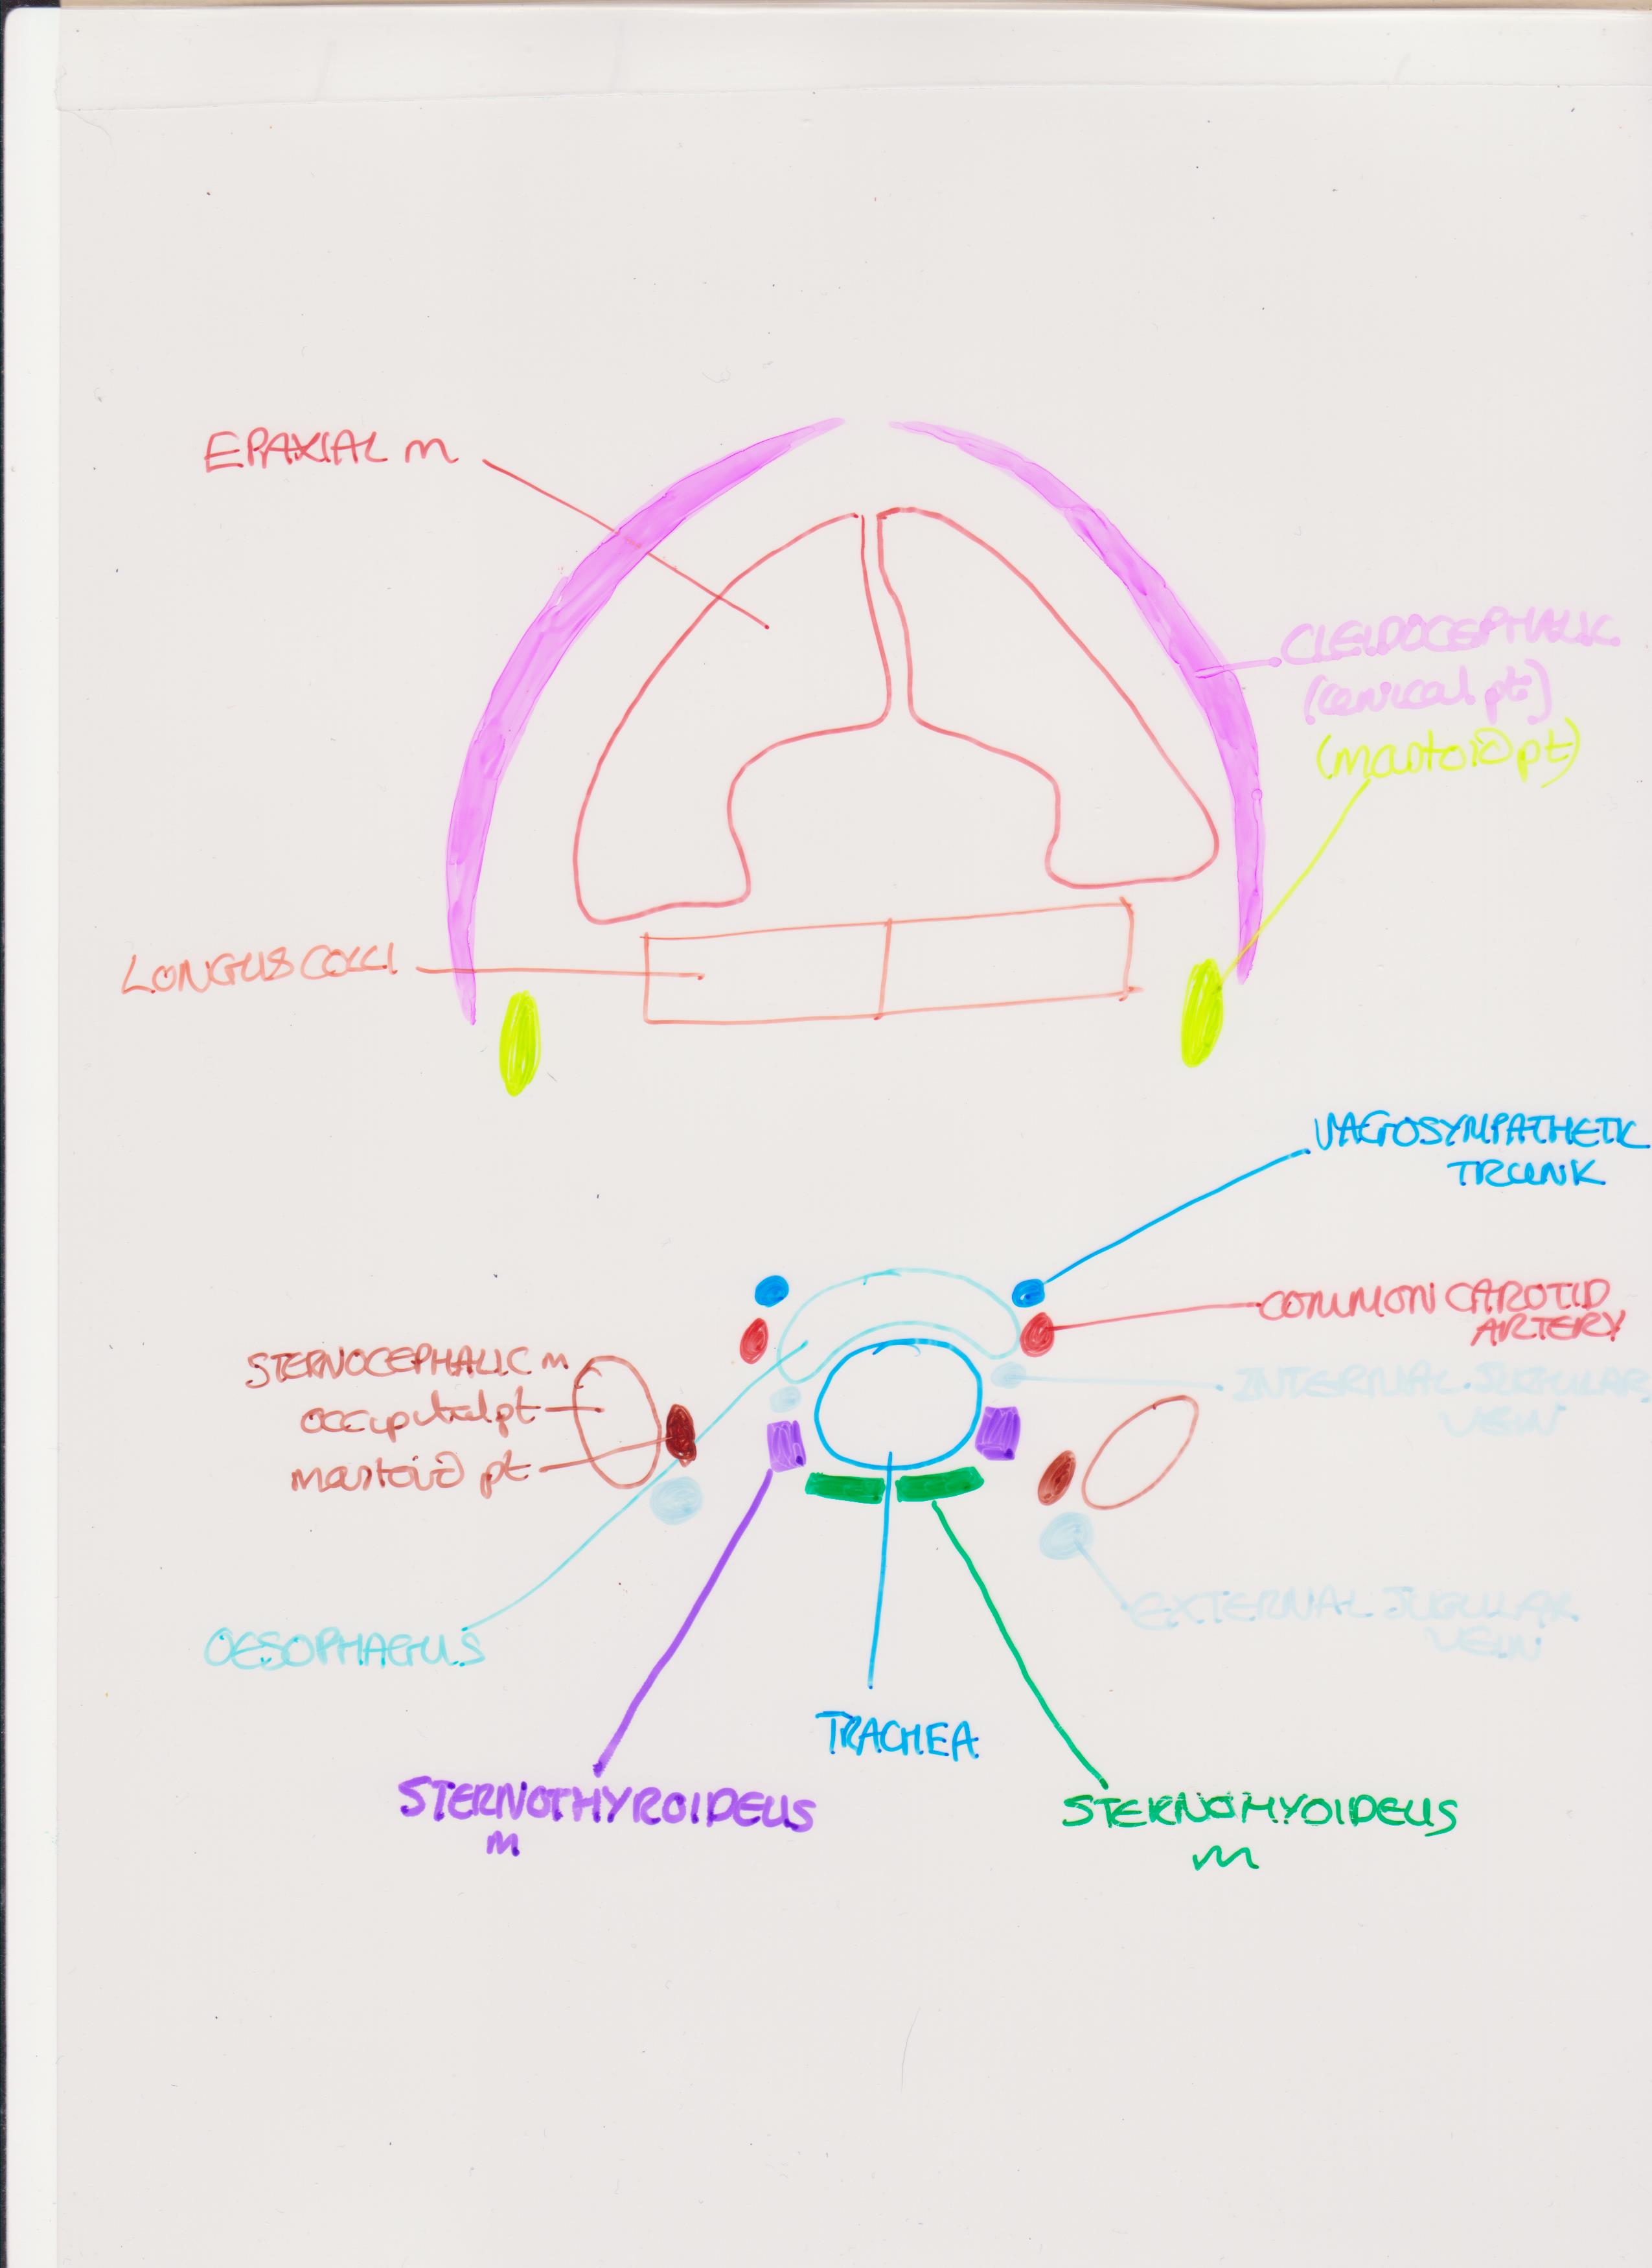 EPAXIAL m
CLEIDOCEPHALIC
(cervical pt)
(mastoid pt)
LONGUS COLLI
VAGOSYMPATHETIC
TRUNK
COMMON CAROTID
ARTERY
STERNOCEPHALIC m
occipital pt
mastoid pt
INTERNAL JUGULAR
VEIN
EXTERNAL JUGULAR
VEIN
OESOPHAGUS
TRACHEA
STERNOTHYROIDEUS
m
STERNOHYOIDEUS
m